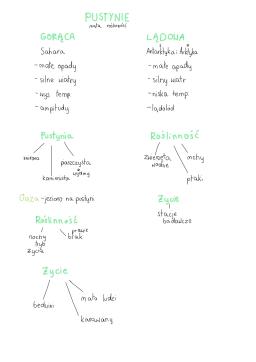 PUSTYNIE
mała roślinność
GORĄCA
Sahara
-małe opady
-silne wiatry
-wys. temp.
-amplitudy
Pustynia
kamienista
piaszczysta
wydmy
Oaza -jezioro na pustyni
Roślinność
nocny
tryb
życia
prawie
brak
Życie
beduini
mało ludzi
karawany
LĄDOWA
Antarktyka i Arktyka
-małe opady
-silny wiatr
-niska temp.
-lądolód
Roślinność
zwierzęta
wodne
mchy
ptaki
Życie
stacje
badawcze